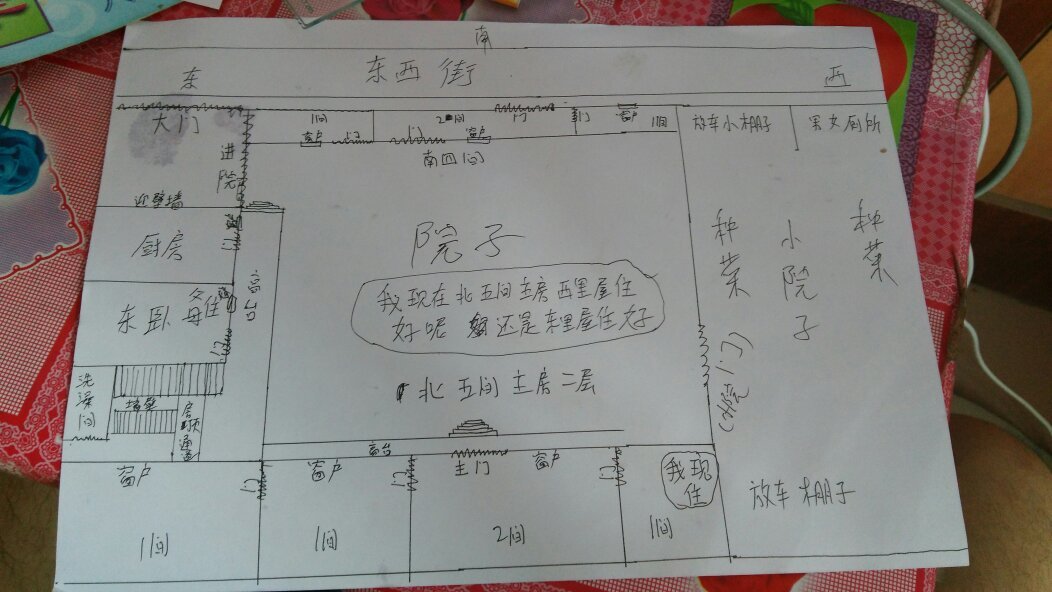 南
东
东西街
西
大门
进院
1间
2间
门
门
窗户
1间
窗户
门
门
窗户
南四间
放车小棚子
男女厕所
迎壁墙
厨房
门
窗台
院子
种菜
小院子
种菜
我现在北五间主房西里屋住
好呢 还是东里屋住好
东卧
母住
门
北五间主房二层
(小院门)
洗澡间
楼梯
房顶通道
窗台
窗户
门
窗户
门
主门
窗户
门
我现住
放车棚子
1间
1间
2间
1间